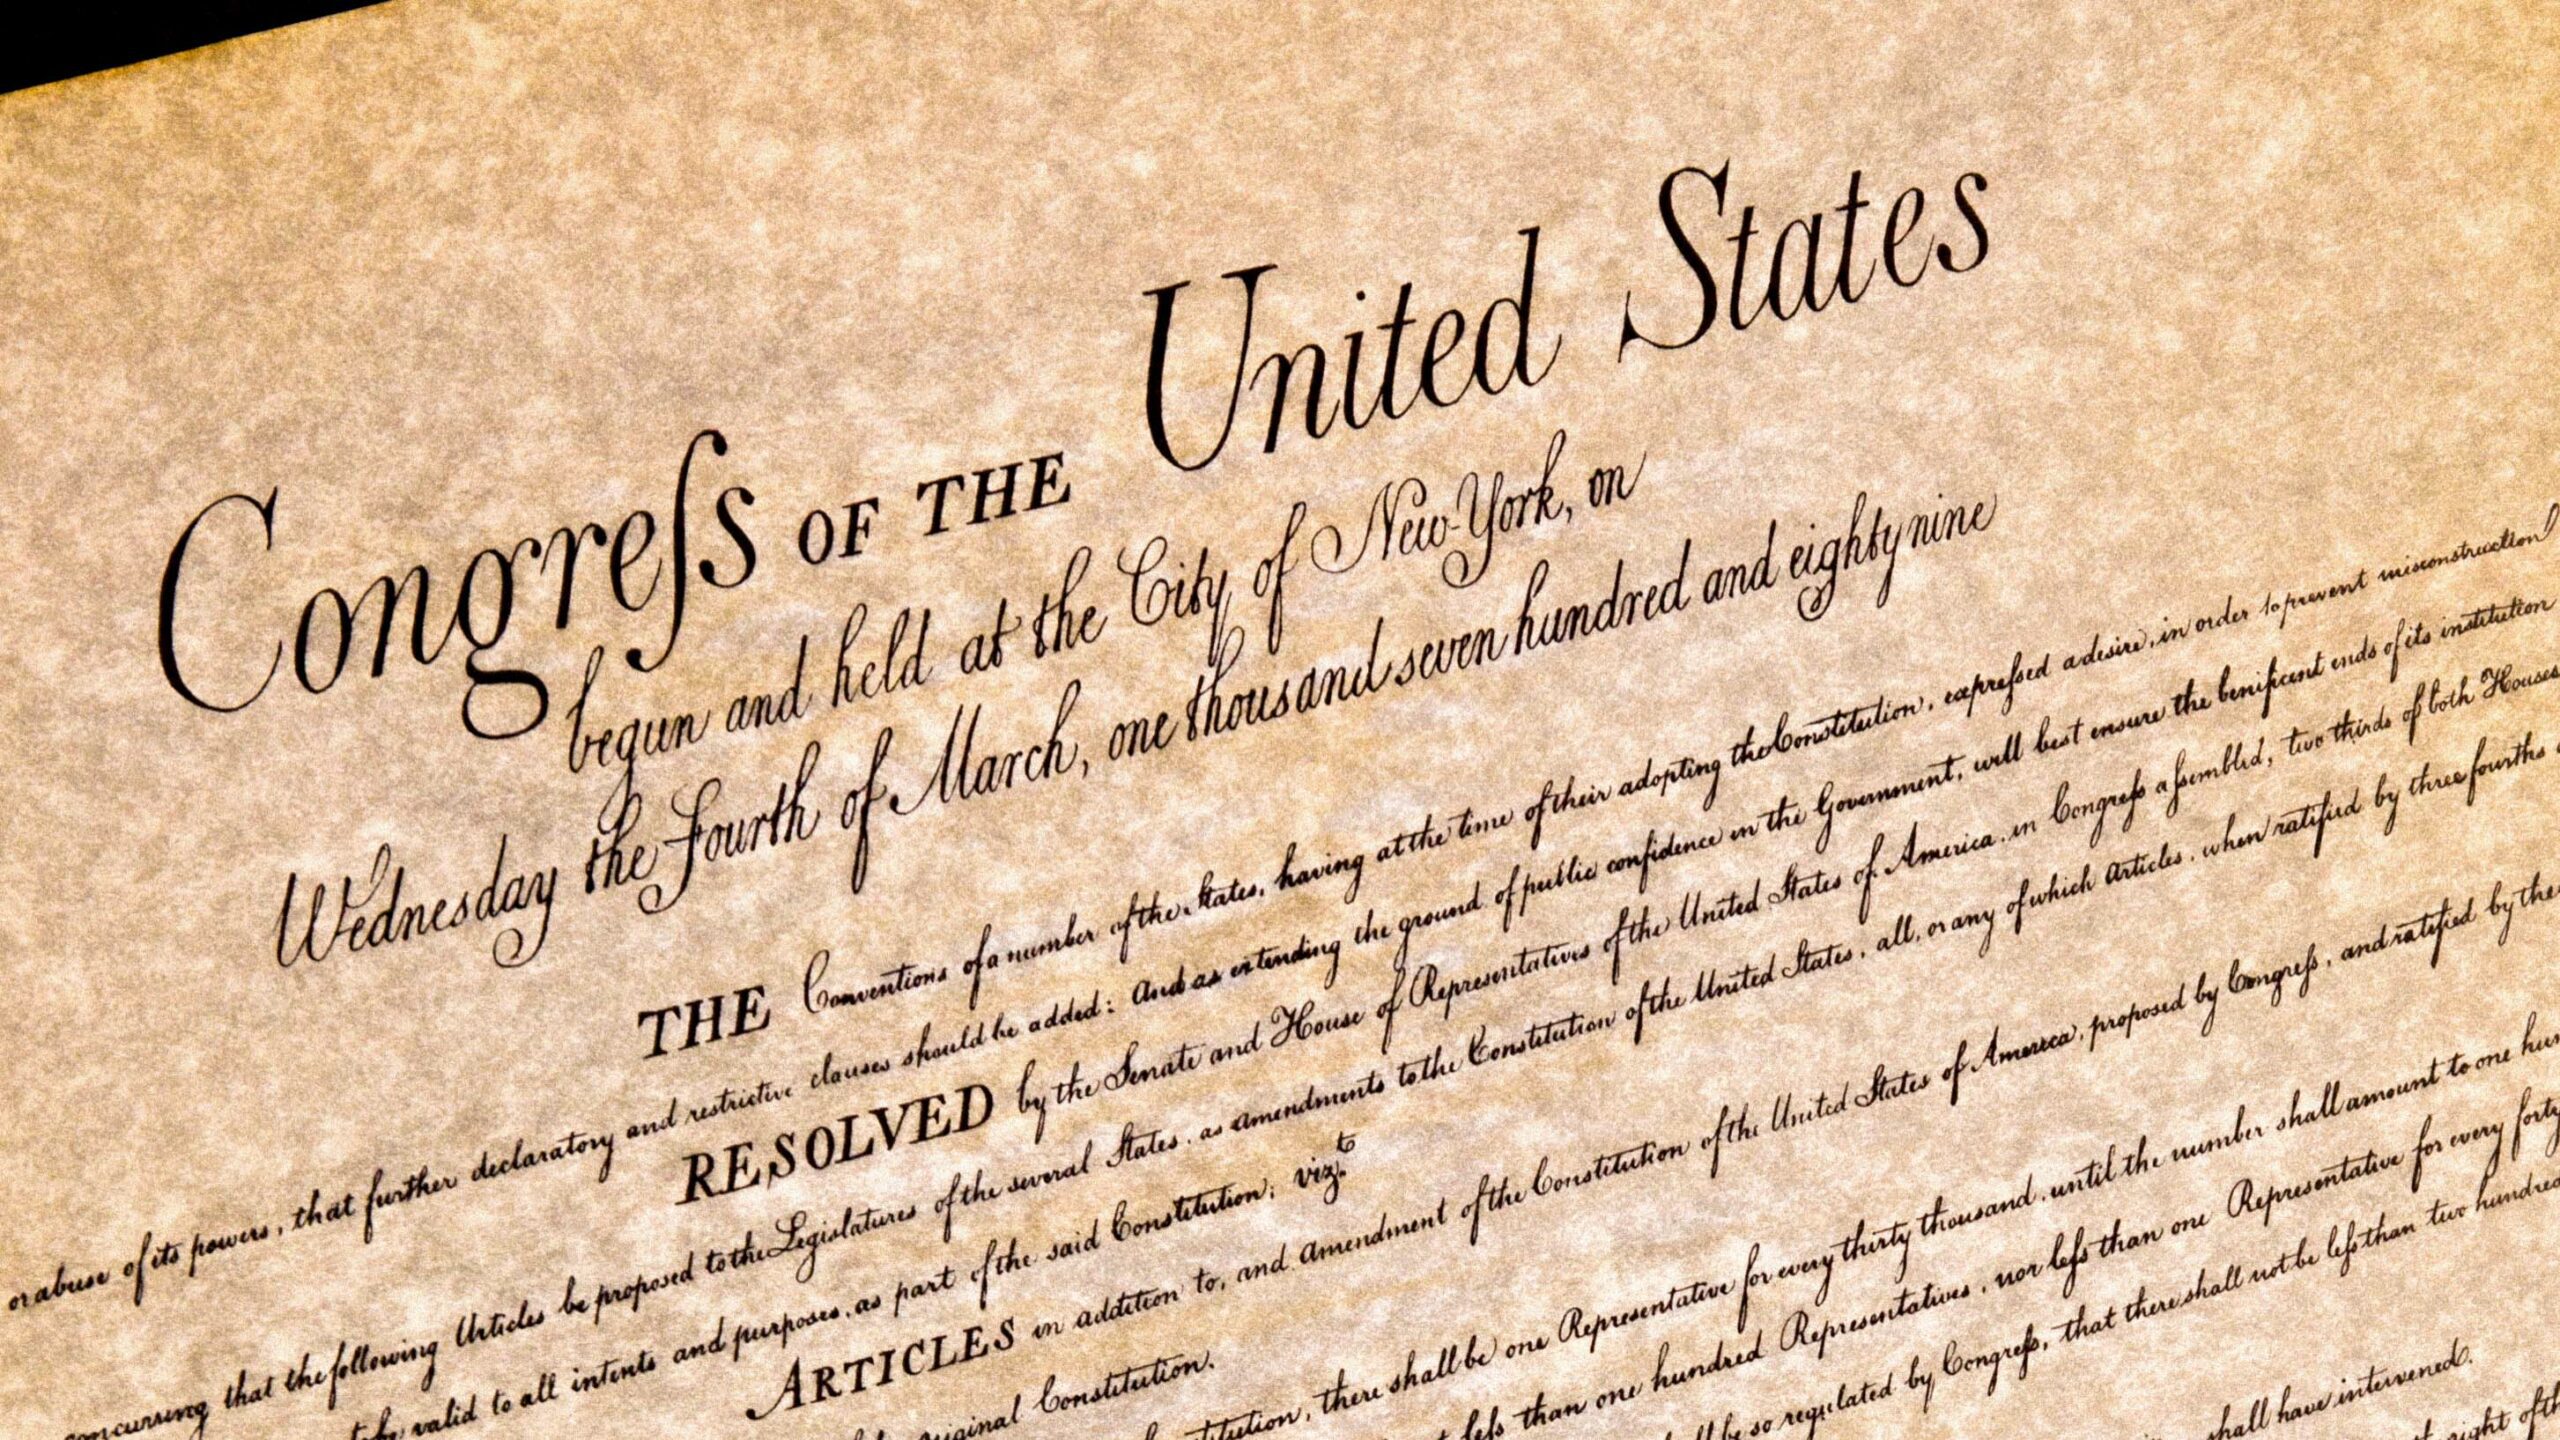 Congreſs OF THE United States
begun and held at the City of New-York, on
Wednesday the Fourth of March, one thousand seven hundred and eighty nine
THE Conventions of a number of the States, having at the time of their adopting the Constitution, expreſsed a desire, in order to prevent misconstruction
or abuse of its powers, that further declaratory and restrictive clauses should be added: And as extending the ground of public confidence in the Government, will best ensure the benificent ends of its institution
RESOLVED by the Senate and House of Representatives of the United States of America, in Congreſs aſsembled, two thirds of both Houses
concurring that the following Articles be proposed to the Legislatures of the several States, as amendments to the Constitution of the United States, all, or any of which Articles, when ratified by three fourths
to be valid to all intents and purposes, as part of the said Constitution; vizt.
ARTICLES in addition to, and amendment of the Constitution of the United States of America, proposed by Congreſs, and ratified by the
original Constitution.
there shall be one Representative for every thirty thousand, until the number shall amount to one
leſs than one hundred Representatives, nor leſs than one Representative for every forty
be so regulated by Congreſs, that there shall not be leſs than two hundred
shall have intervened.
right of